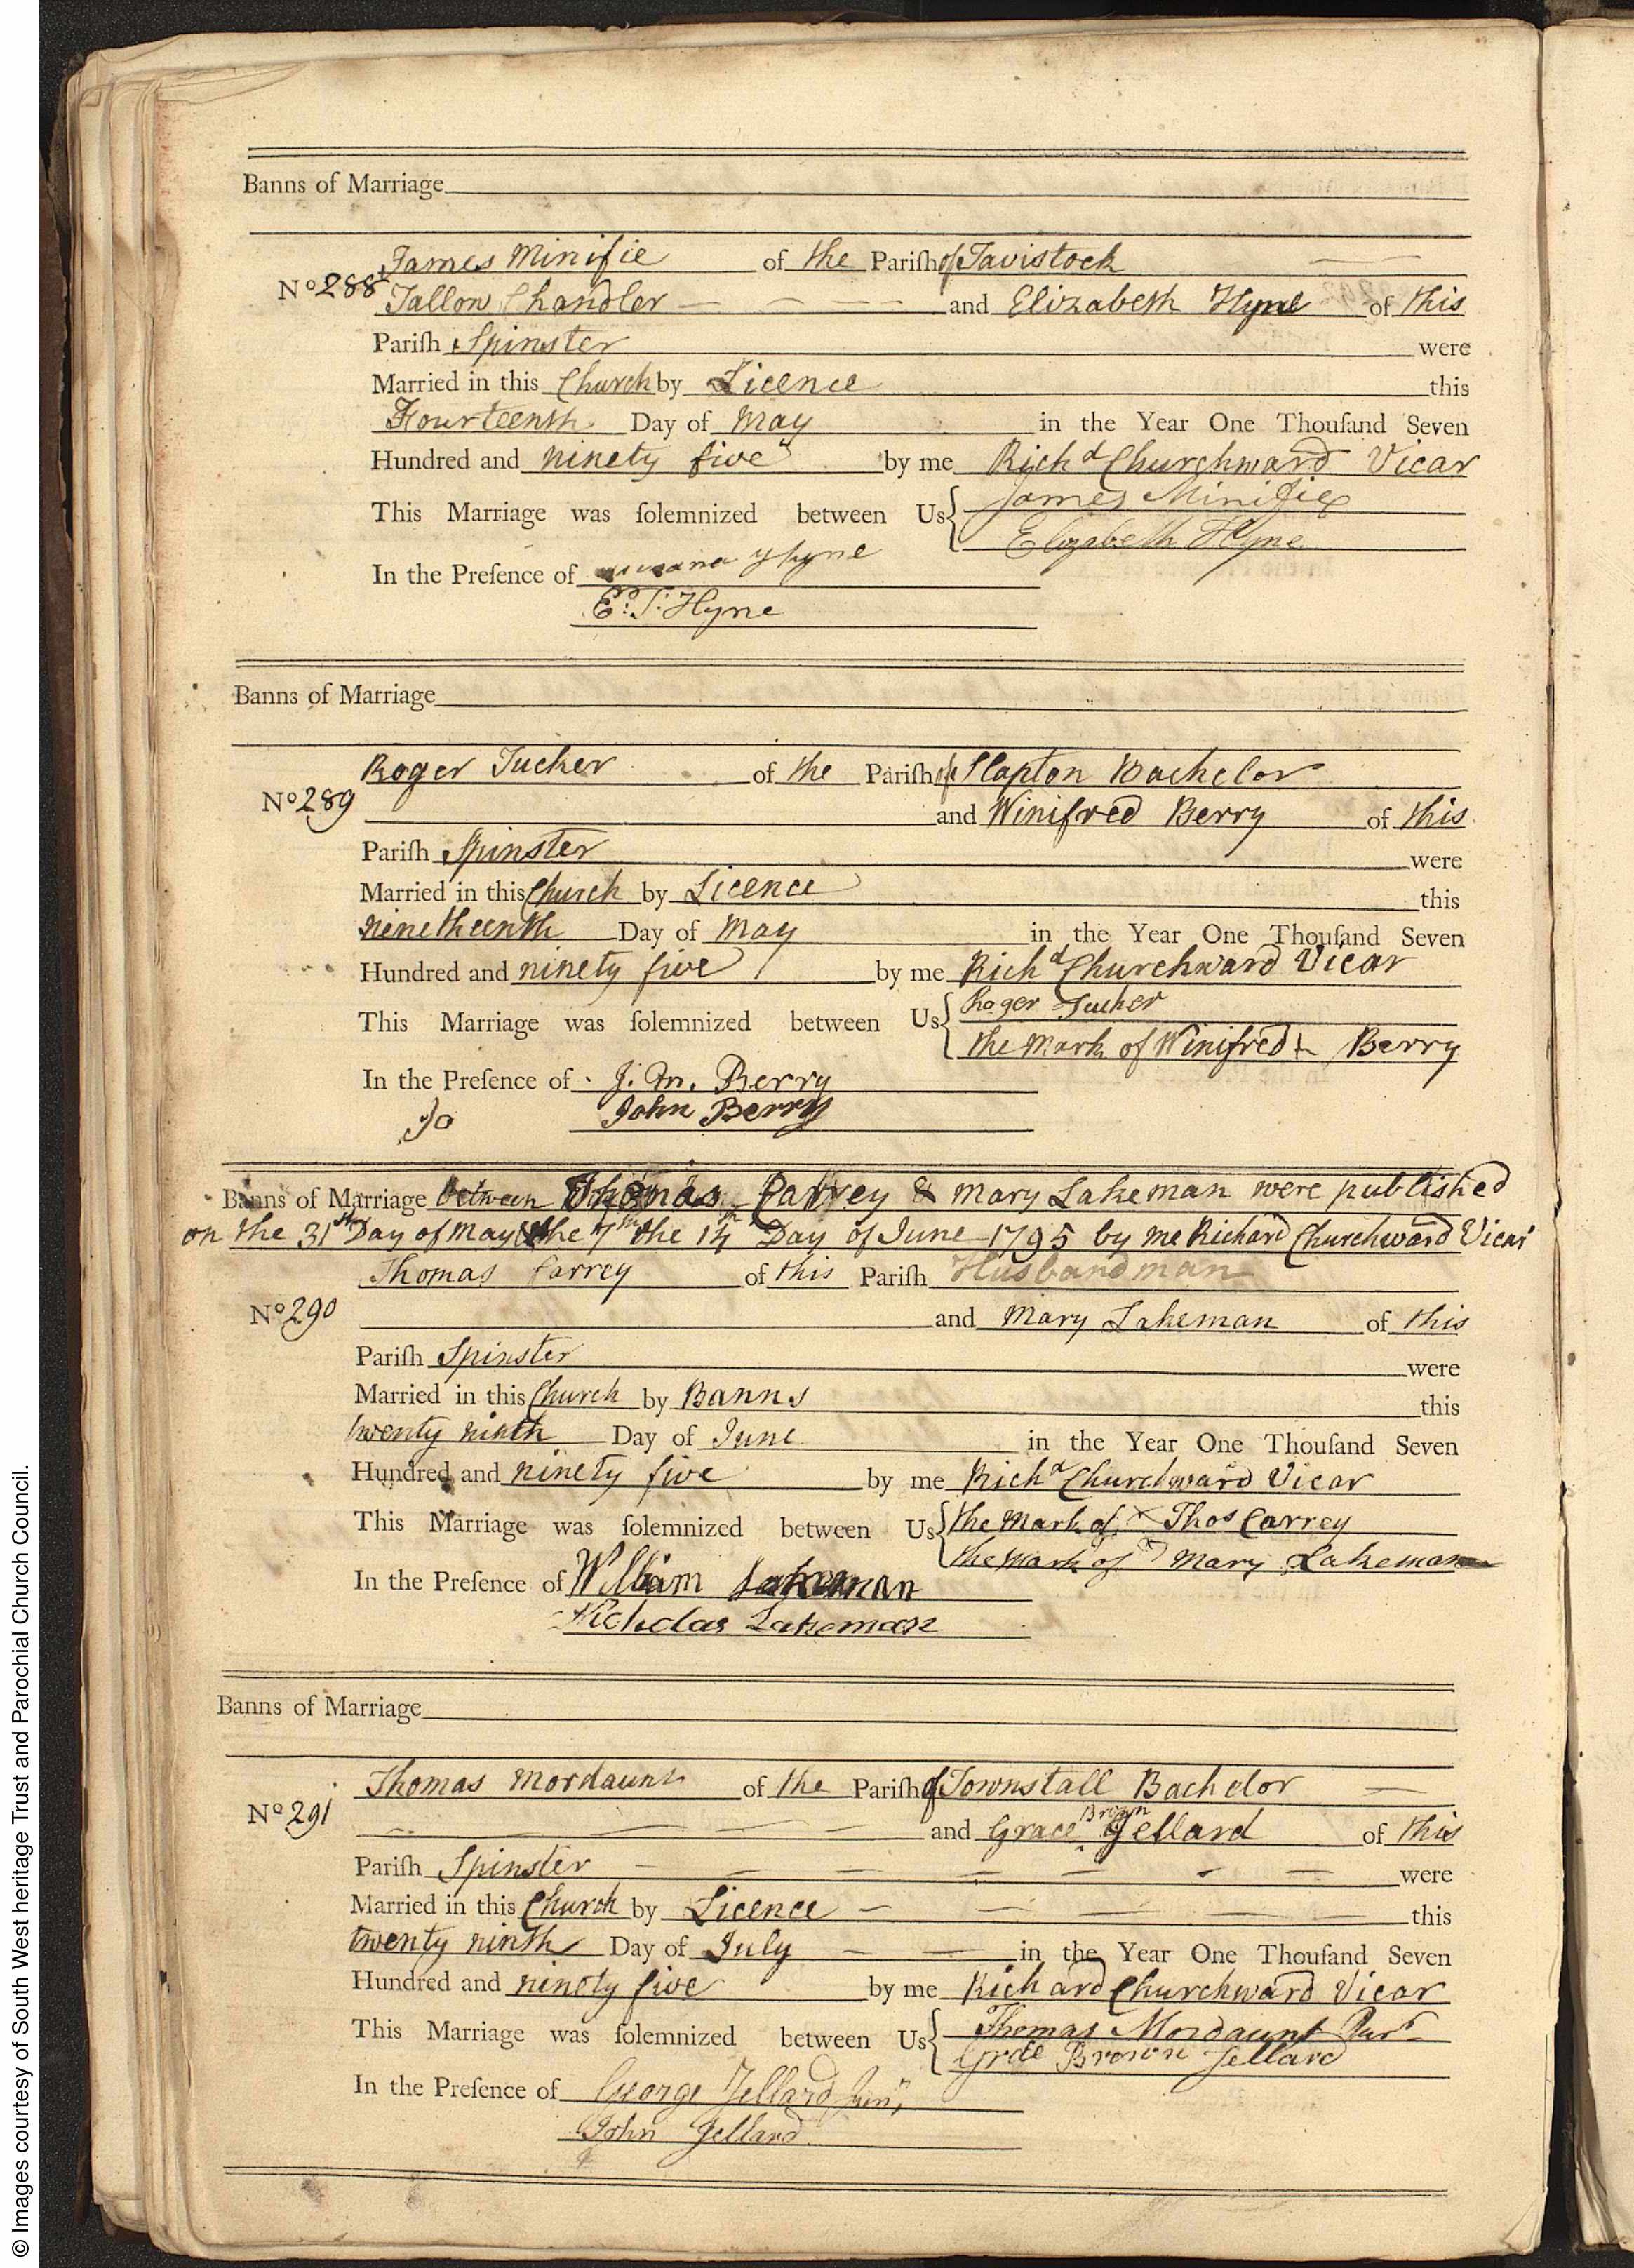 Banns of Marriage
James Minifie of the Pariſh of Tavistock
No 288 Tallow Chandler and Elizabeth Hyne of this
Pariſh Spinster were
Married in this Church by Licence this
Fourteenth Day of May in the Year One Thouſand Seven
Hundred and ninety five by me Richd Churchward Vicar
This Marriage was ſolemnized between Us { James Minifie
Elizabeth Hyne
In the Preſence of Hyne
Ed. T. Hyne
Banns of Marriage
Roger Tucker of the Pariſh of Slapton Bachelor
No 289 and Winifred Berry of this
Pariſh Spinster were
Married in this Church by Licence this
ninetheenth Day of May in the Year One Thouſand Seven
Hundred and ninety five by me Richd Churchward Vicar
This Marriage was ſolemnized between Us { Roger Tucker
the Mark of Winifred + Berry
In the Preſence of J. M. Berry
Jo John Berry
Banns of Marriage between Thomas Carrey & Mary Lakeman were published
on the 31st Day of May the 7th the 14 Day of June 1795 by me Richard Churchward Vicar
Thomas Carrey of this Pariſh Husbandman
No 290 and Mary Lakeman of this
Pariſh Spinster were
Married in this Church by Banns this
twenty ninth Day of June in the Year One Thouſand Seven
Hundred and ninety five by me Richd Churchward Vicar
This Marriage was ſolemnized between Us { the Mark of x Thos Carrey
the Mark of Mary Lakeman
In the Preſence of William Lakeman
Nicholas Lakeman
Banns of Marriage
Thomas Mordaunt of the Pariſh of Townstall Bachelor
No 291 and Grace Brown Jellard of this
Pariſh Spinster were
Married in this Church by Licence this
twenty ninth Day of July in the Year One Thouſand Seven
Hundred and ninety five by me Richard Churchward Vicar
This Marriage was ſolemnized between Us { Thomas Mordaunt
Grace Brown Jellard
In the Preſence of George Jellard Junr
John Jellard
© Images courtesy of South West heritage Trust and Parochial Church Council.